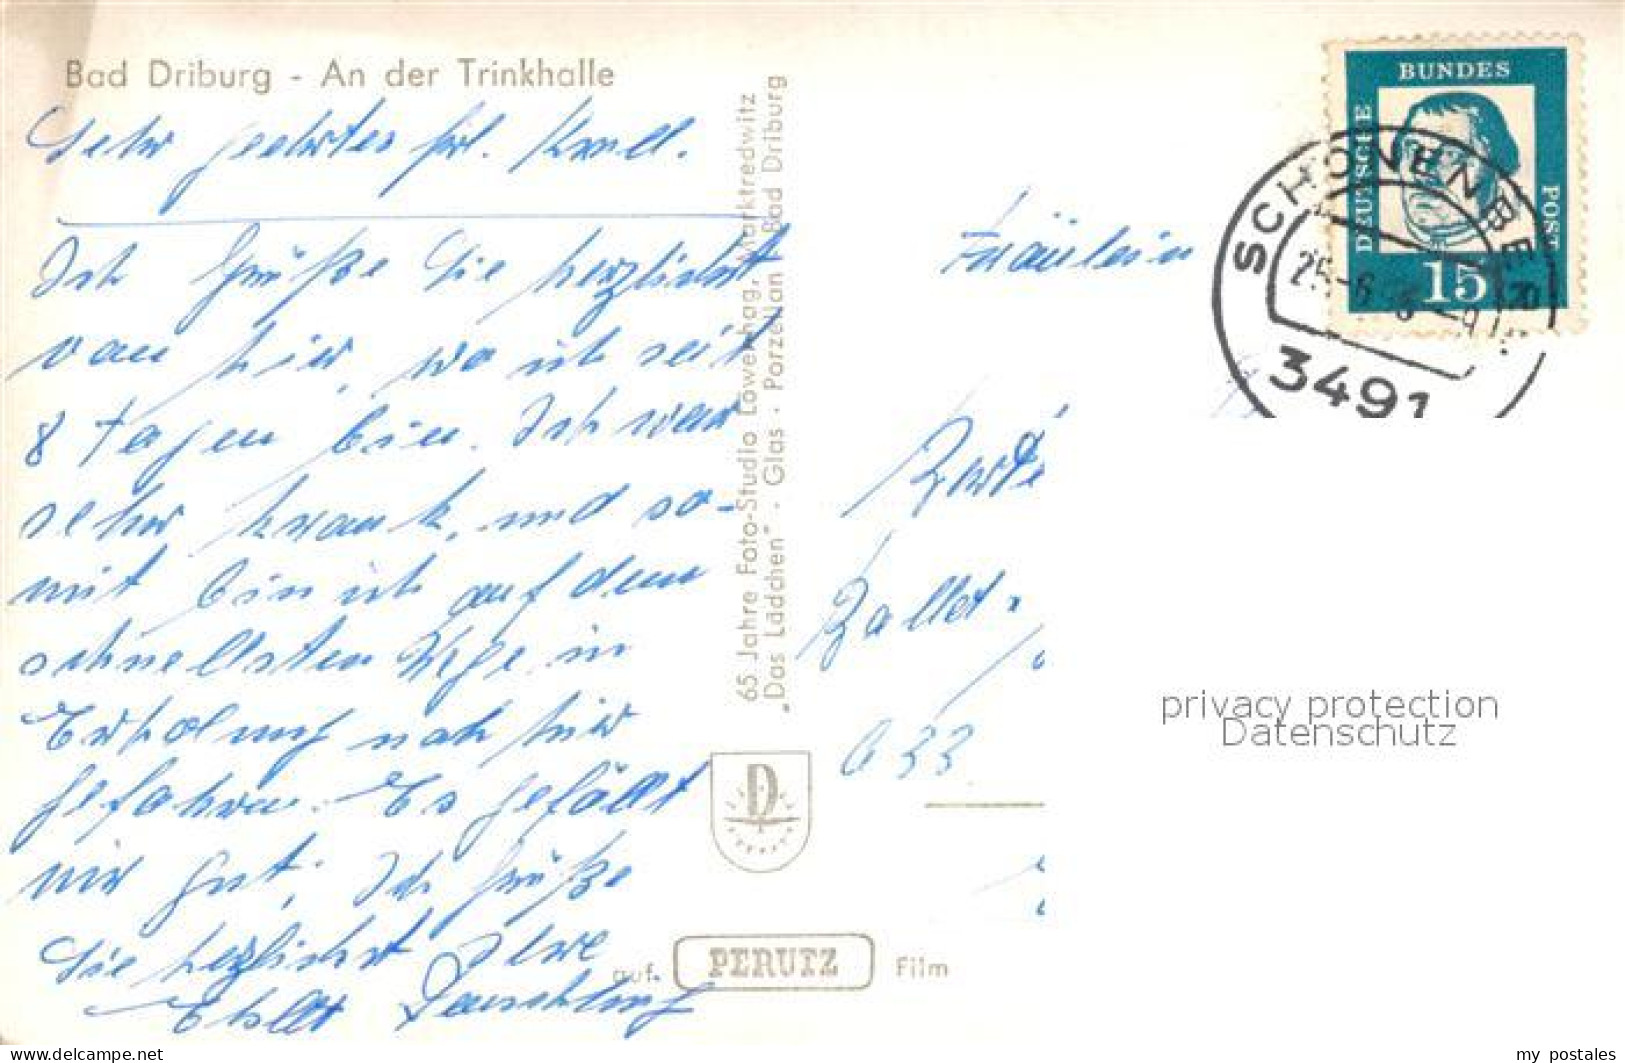 Bad Driburg - An der Trinkhalle
Sehr geehrtes Frl. Knell.
Ich Grüße Sie herzlichst
von hier, wo ich seit
8 Tagen bin. Ich war
sehr krank, und so-
mit bin ich auf dem
schnellsten Wege in
Erholung nach hier
gefahren. Es gefällt
mir gut, Ich Grüße
Sie herzlichst Ihre
65 Jahre Foto-Studio Löwenhag, Marktredwitz
„Das Lädchen" · Glas · Porzellan Bad Driburg
D
auf PERUTZ Film
DEUSCHE BUNDES POST
15
SCHÖNENBE
25.-6.
3491
Fräulein
Ballet
633
privacy protection
Datenschutz
delcampe.net
my_postales